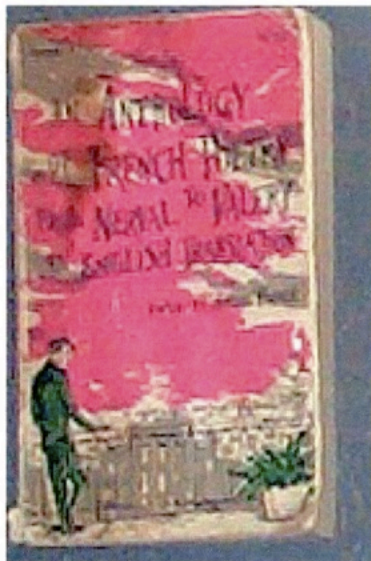 AN ANTHOLOGY
OF FRENCH POETRY
FROM NERVAL TO VALERY
IN ENGLISH TRANSLATION